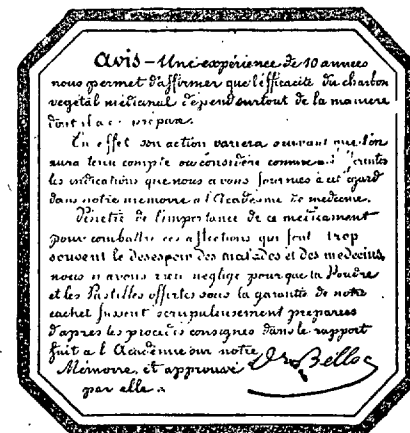 Avis – Une expérience de 10 années
nous permet d'affirmer que l'efficacité du charbon
végétal médicinal dépend surtout de la manière
dont il a été préparé.
En effet son action variera suivant que l'on
aura tenu compte ou considéré comme
les indications que nous avons fournies à cet égard
dans notre mémoire à l'Académie de médecine.
Pénétré de l'importance de ce médicament
pour combattre ces affections qui font trop
souvent le désespoir des malades et des médecins,
nous n'avons rien négligé pour que la Poudre
et les Pastilles offertes sous la garantie de notre
cachet fussent scrupuleusement préparées
d'après les procédés consignés dans le rapport
fait à l'Académie sur notre
Mémoire, et approuvé Dr Belloc
par elle.